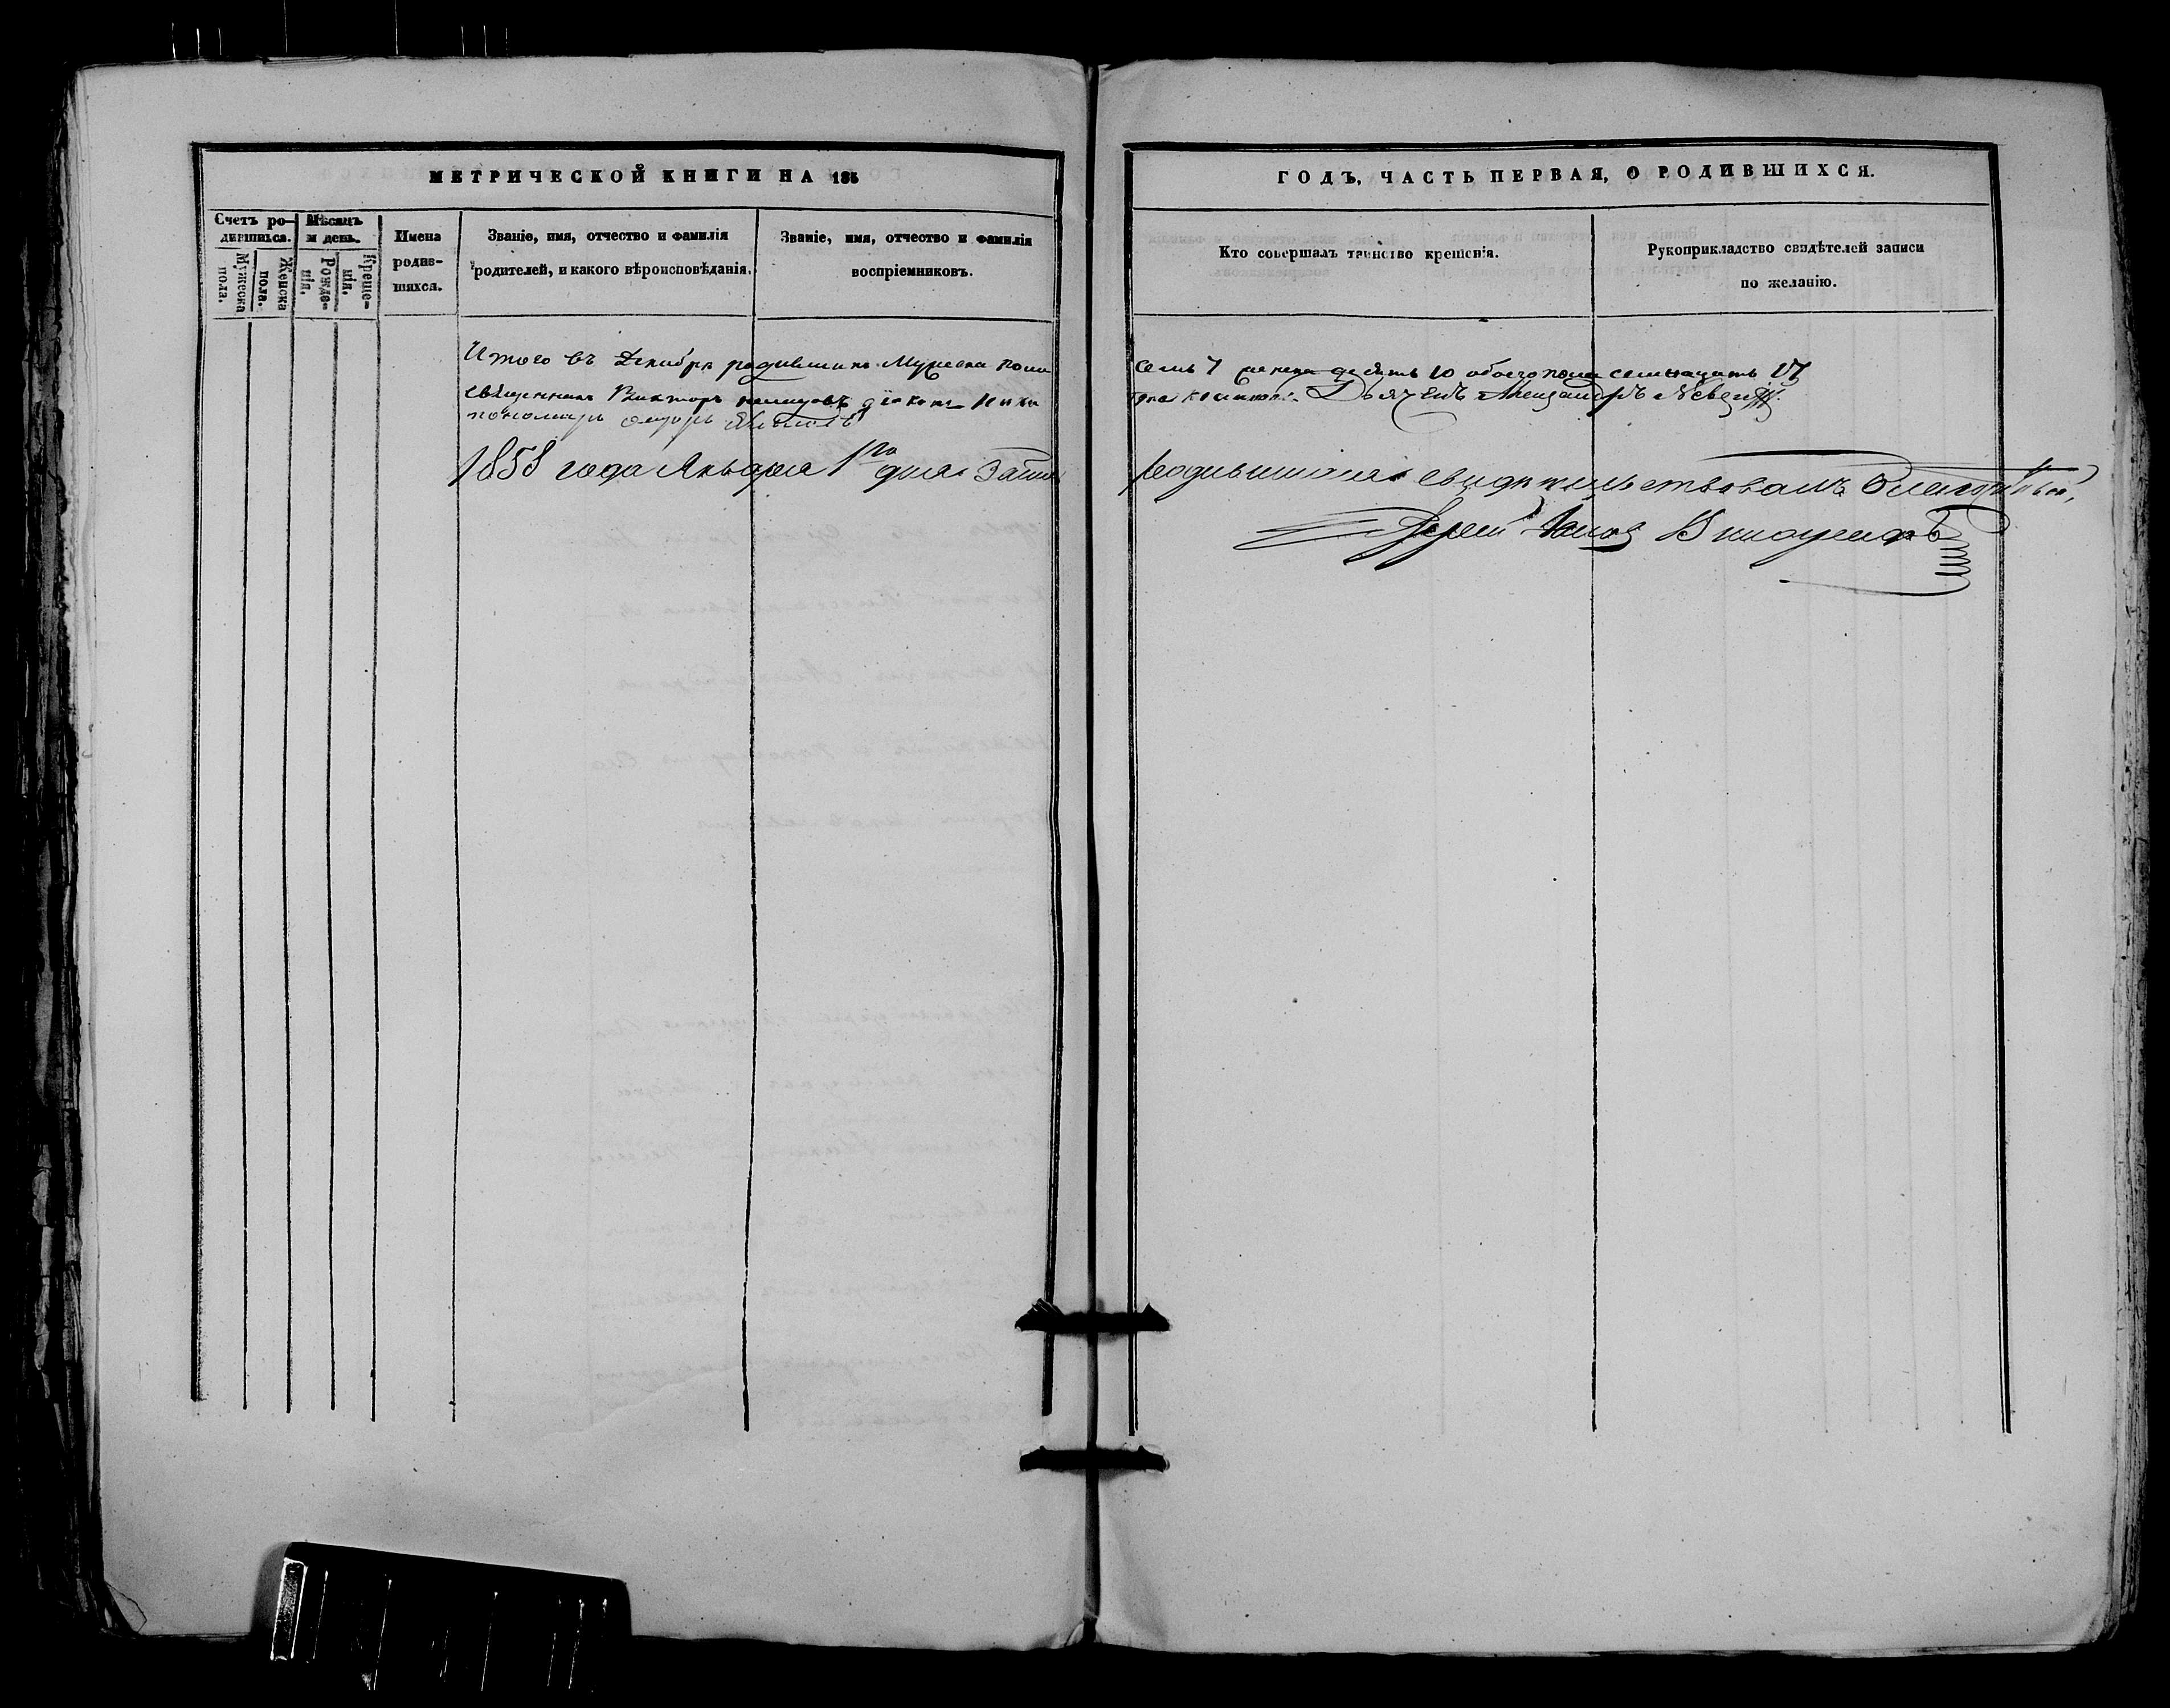 МЕТРИЧЕСКОЙ КНИГИ НА 185
Счетъ родившихся.
Мужеска пола.
Женска пола.
Мѣсяцъ и день.
Рожденія.
Крещенія.
Имена родившихся.
Званіе, имя, отчество и фамилія
родителей, и какого вѣроисповѣданія.
Званіе, имя, отчество и фамилія
воспріемниковъ.
Итого въ Декабрѣ родившихся Мужеска пола
священникъ Викторъ діаконъ
пономарь
1858 года Января 1го дня
ГОДЪ, ЧАСТЬ ПЕРВАЯ, О РОДИВШИХСЯ.
Кто совершалъ таинство крещенія.
Рукоприкладство свидѣтелей записи
по желанію.
семь 7 женска десять 10 обоего пола семнацать 17
Дьячекъ Александръ
родившихся свидѣтельствовалъ Благочинный,
Іерей